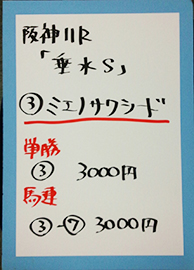 阪神11R
「垂水S」
③ミエノサワシード
単勝
③ 3000円
馬連
③-⑦ 3000円